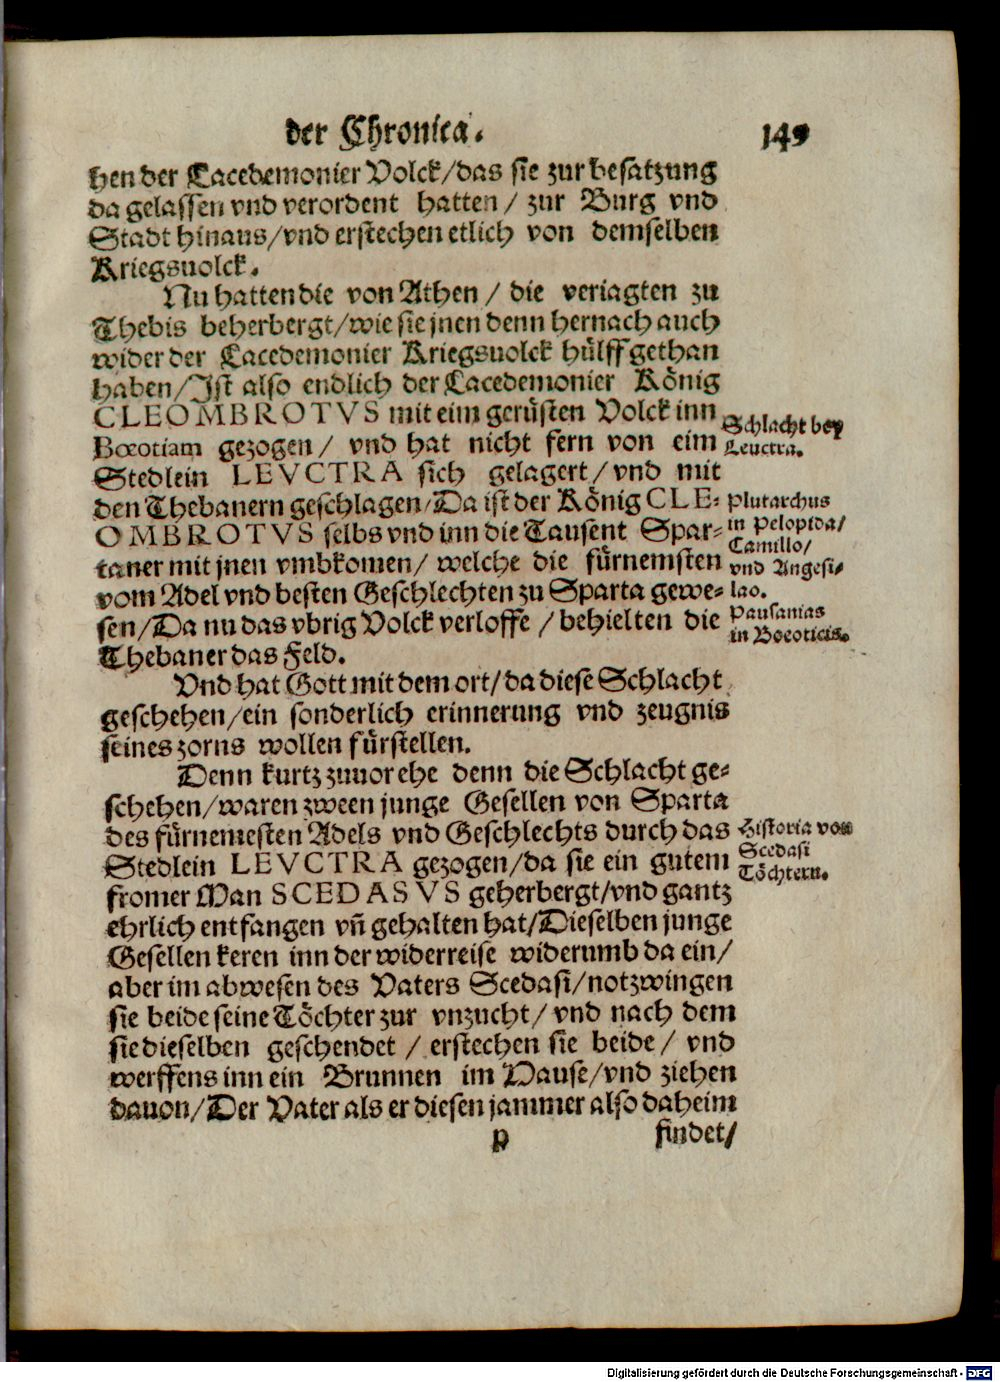 der Chronica.
149
hen der Lacedemonier Volck/das sie zur besatzung
da gelassen vnd verordent hatten / zur Burg vnd
Stadt hinaus/vnd erstechen etlich von demselben
Kriegsuolck.
Nu hatten die von Athen / die veriagten zu
Thebis beherbergt/wie sie jnen denn hernach auch
wider der Lacedemonier Kriegsuolck hülff gethan
haben/Ist also endlich der Lacedemonier König
CLEOMBROTVS mit eim gerüsten Volck inn
Bœotiam gezogen / vnd hat nicht fern von eim
Stedlein LEVCTRA sich gelagert / vnd mit
den Thebanern geschlagen/Da ist der König CLE-
OMBROTVS selbs vnd inn die Tausent Spar-
taner mit jnen vmbkomen/ welche die fürnemsten
vom Adel vnd besten Geschlechten zu Sparta gewe-
sen/Da nu das vbrig Volck verloffe / behielten die
Thebaner das Feld.
Schlacht bey
Leuctra.
Plutarchus
in Pelopida/
Camillo/
vnd Angesi-
lao.
Pausanias
in Boeoticis.
Vnd hat Gott mit dem ort/da diese Schlacht
geschehen/ein sonderlich erinnerung vnd zeugnis
seines zorns wollen fürstellen.
Denn kurtz zuuor ehe denn die Schlacht ge-
schehen/waren zween junge Gesellen von Sparta
des fürnemesten Adels vnd Geschlechts durch das
Stedlein LEVCTRA gezogen/da sie ein gutem
fromer Man SCEDASVS geherbergt/vnd gantz
ehrlich entfangen vñ gehalten hat/Dieselben junge
Gesellen keren inn der widerreise widerumb da ein/
aber im abwesen des Vaters Scedasi/notzwingen
sie beide seine Töchter zur vnzucht/ vnd nach dem
sie dieselben geschendet / erstechen sie beide/ vnd
werffens inn ein Brunnen im Hause/vnd ziehen
dauon/Der Vater als er diesen jammer also daheim
Historia von
Scedasi
Töchtern.
p
findet/
Digitalisierung gefördert durch die Deutsche Forschungsgemeinschaft - DFG